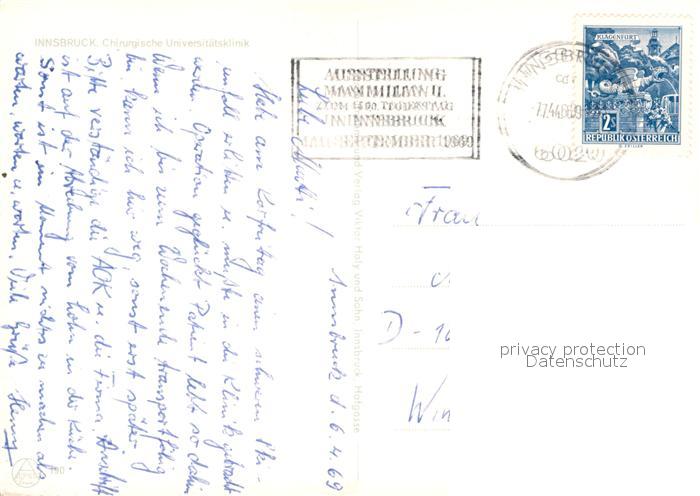 INNSBRUCK. Chirurgische Universitätsklinik
AUSSTELLUNG
MAXIMILIAN I.
ZUM TODESTAG
IN INNSBRUCK
SEPTEMBER 1969
INNSBRUCK
6020
KLAGENFURT
2S
REPUBLIK ÖSTERREICH
Innsbruck d. 6.4.69
Liebe Mutti!
Habe am Karfreitag einen schweren Ski-
unfall erlitten u. mußte in die Klinik gebracht
werden. Operation geglückt Patient lebt so dahin
Wenn ich bis zum Wochenende transportfähig
bin kann ich hier weg, sonst erst später
Bitte verständige die AOK u. die Firma. Anschrift
ist auf der Abrechnung vom Lohn in der Küche.
Sonst ist im Moment nichts zu machen als
warten, warten u. warten. Viele Grüße
Verlag Viktor Holy und Sohn, Innsbruck, Hofgasse
190
Frau
D-
Win
privacy protection
Datenschutz